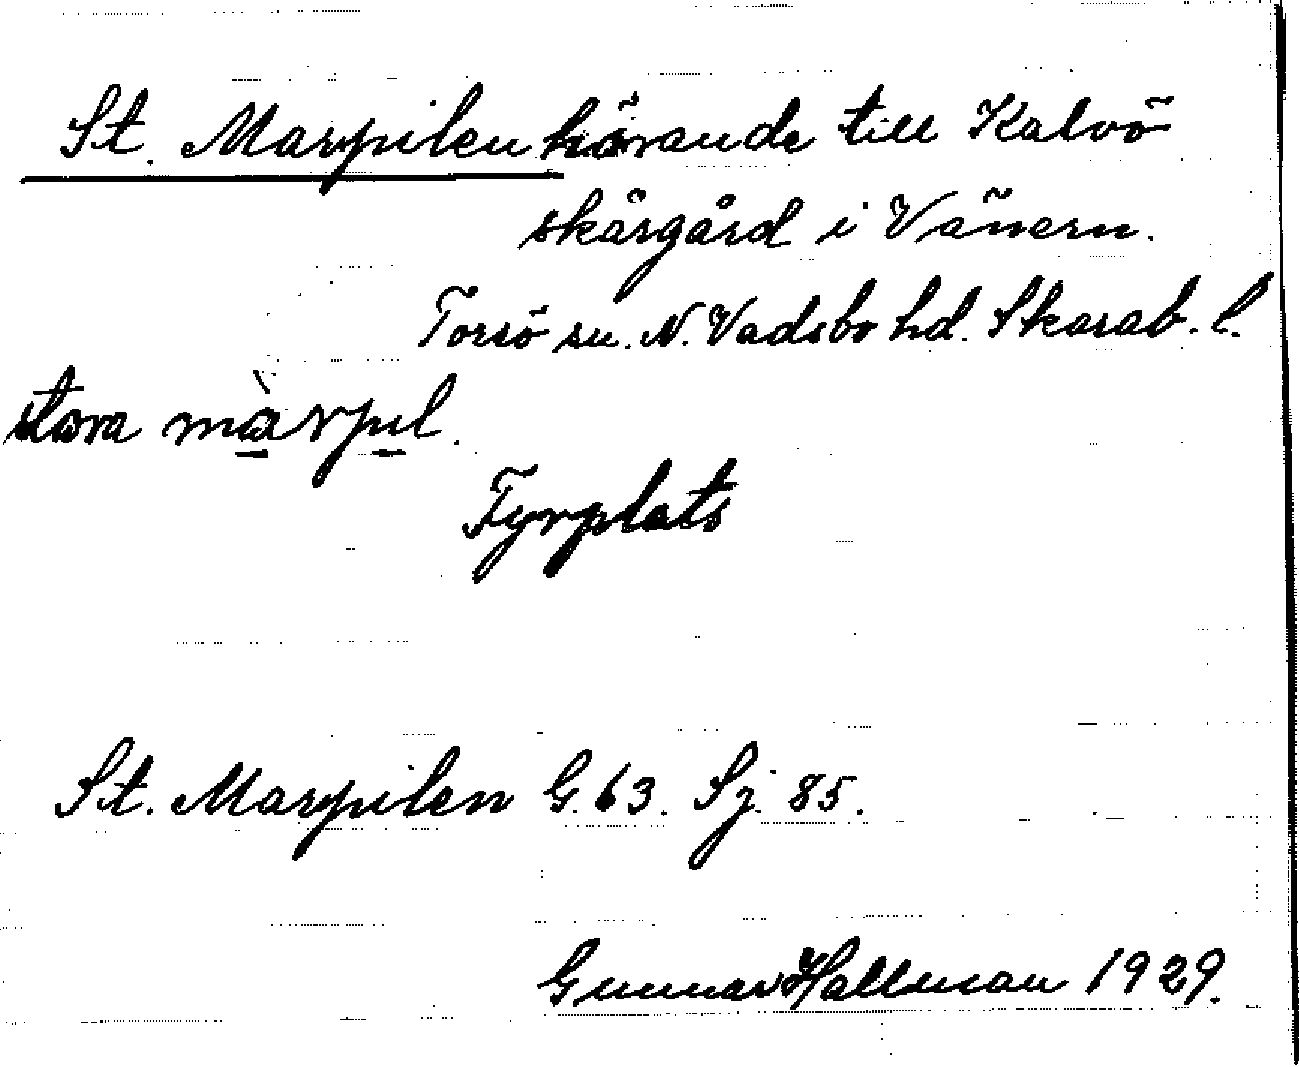 St. Marpilen hörande till Kalvö
skärgård i Vänern.
Torsö sn. N. Vadsbo hd. Skarab. l.
stora màrpıl.
Fyrplats
St. Marpilen G. 63. Sj. 85.
Gunnar Hallman 1929.